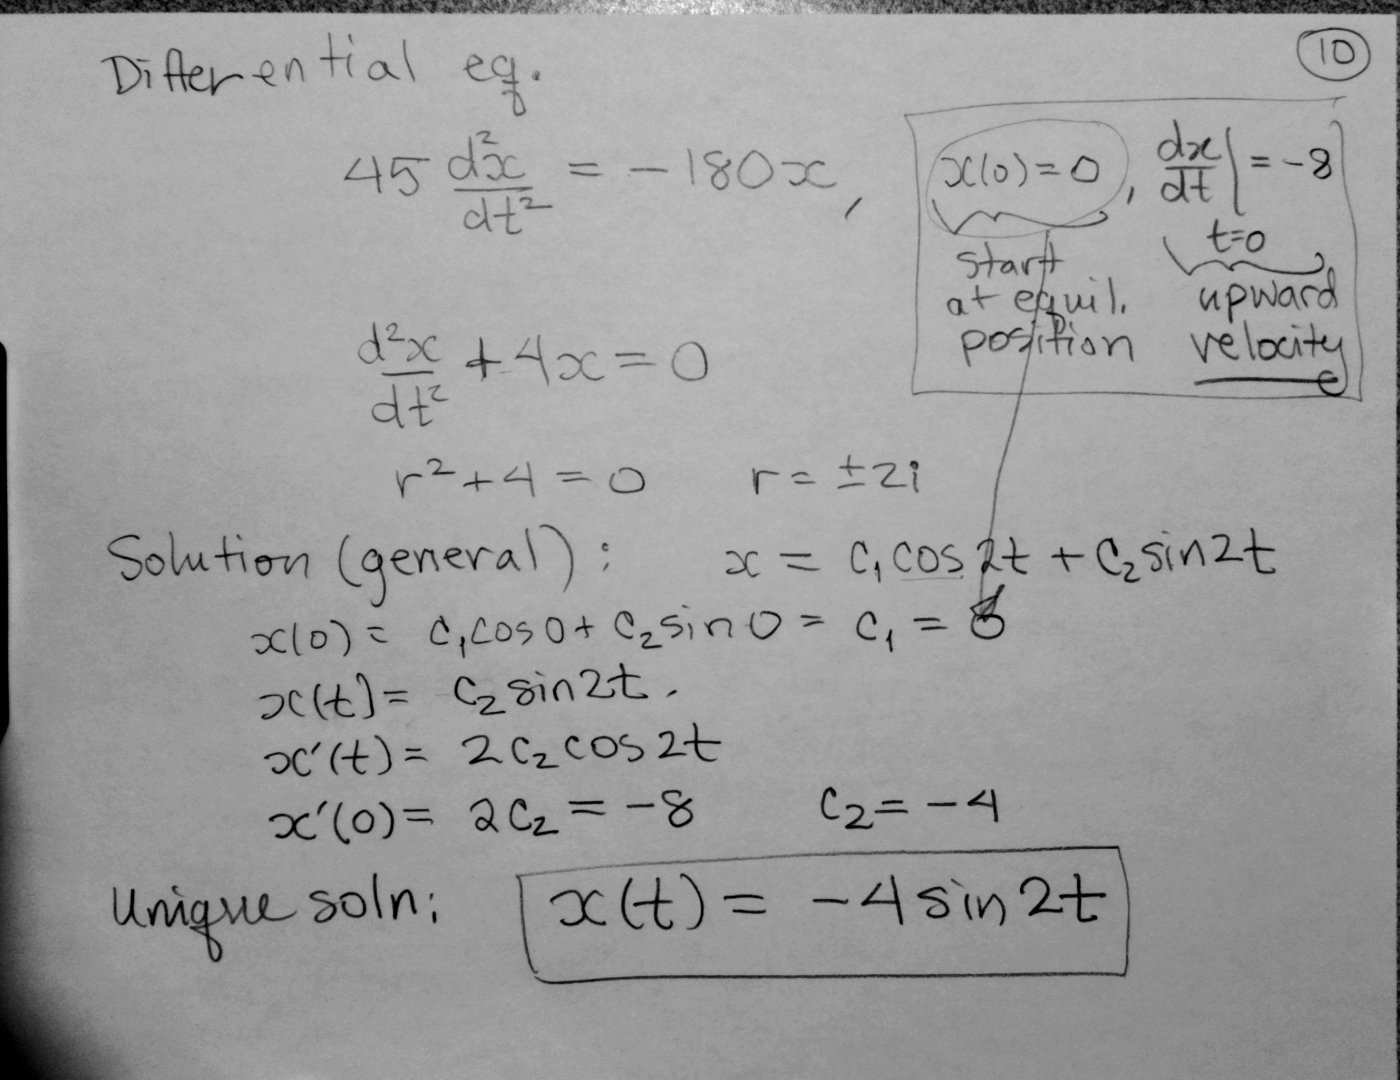 10
Differential eq.
45 d²x/dt² = -180x, x(0)=0, dx/dt | t=0 = -8
start at equil. position
upward velocity
d²x/dt² + 4x = 0
r² + 4 = 0 r = ±2i
Solution (general): x = c₁cos2t + c₂sin2t
x(0) = c₁cos0 + c₂sin0 = c₁ = 0
x(t) = c₂sin2t.
x'(t) = 2c₂cos2t
x'(0) = 2c₂ = -8 c₂ = -4
Unique soln: x(t) = -4sin2t